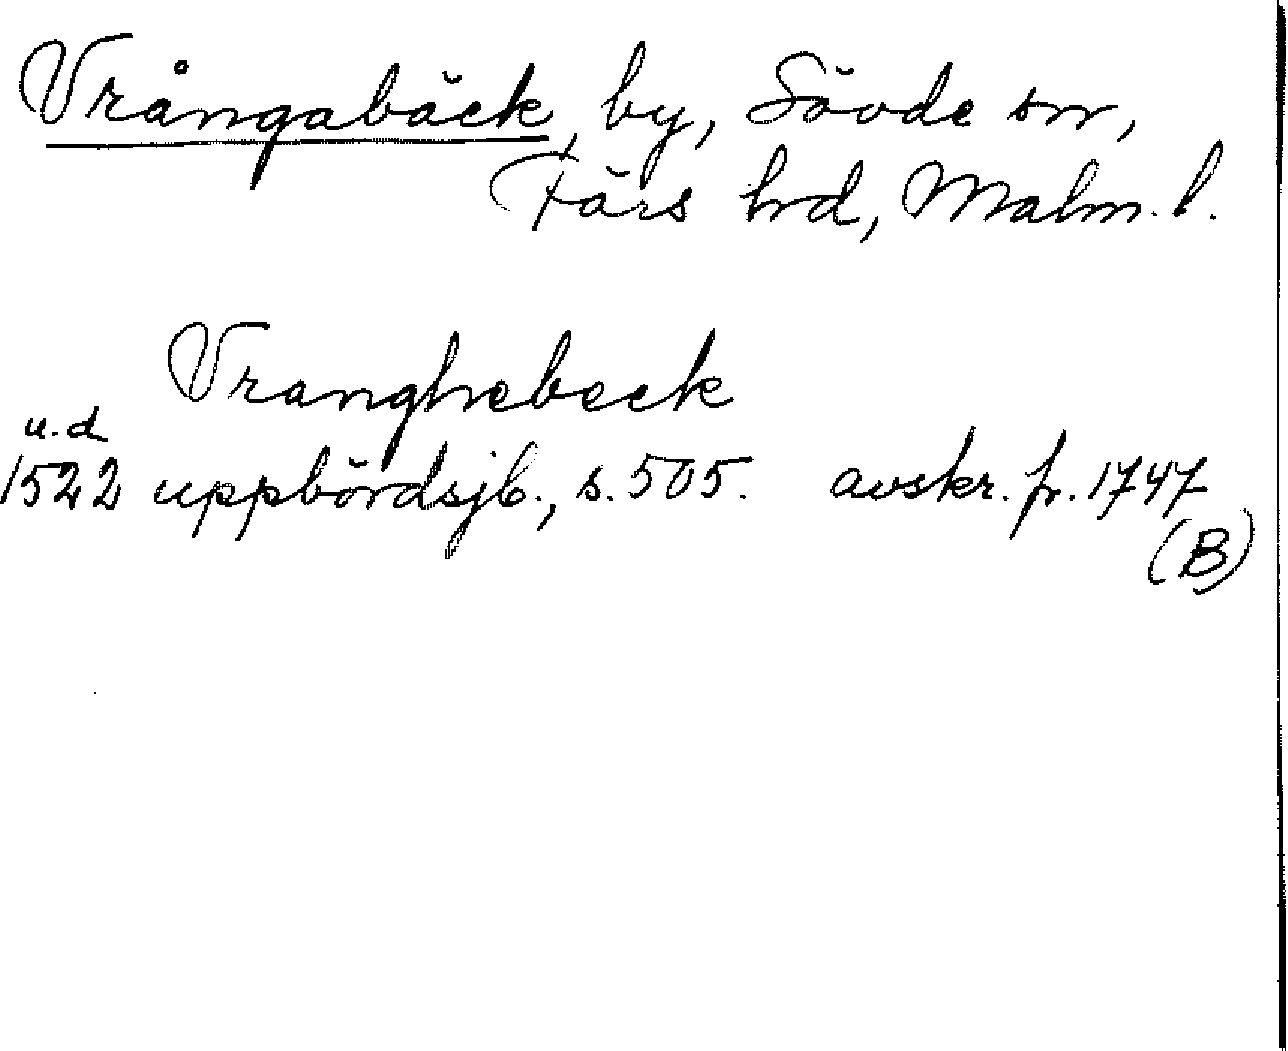 Vrångabäck, by, Sövde sn,
Färs hrd, Malm. l.
Vranghebeck
u.d
1522 uppbördsjb., s. 505. avskr. fr. 1747
(B)